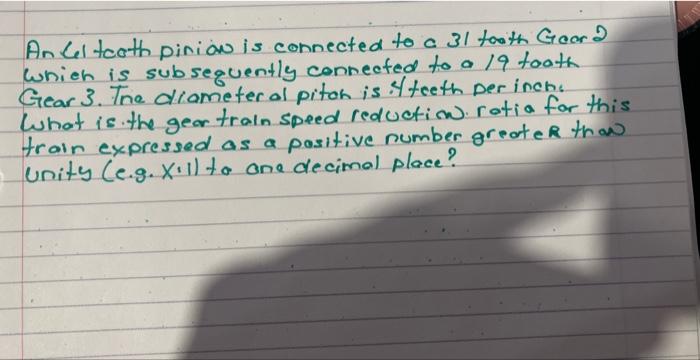 An tooth pinion is connected to a 31 tooth Gear 2
which is subsequently connected to a 19 tooth
Gear 3. The diameteral pitch is 4 teeth per inch.
What is the gear train speed reduction ratio for this
train expressed as a positive number greateR than
unity (e.g. X:1) to one decimal place?